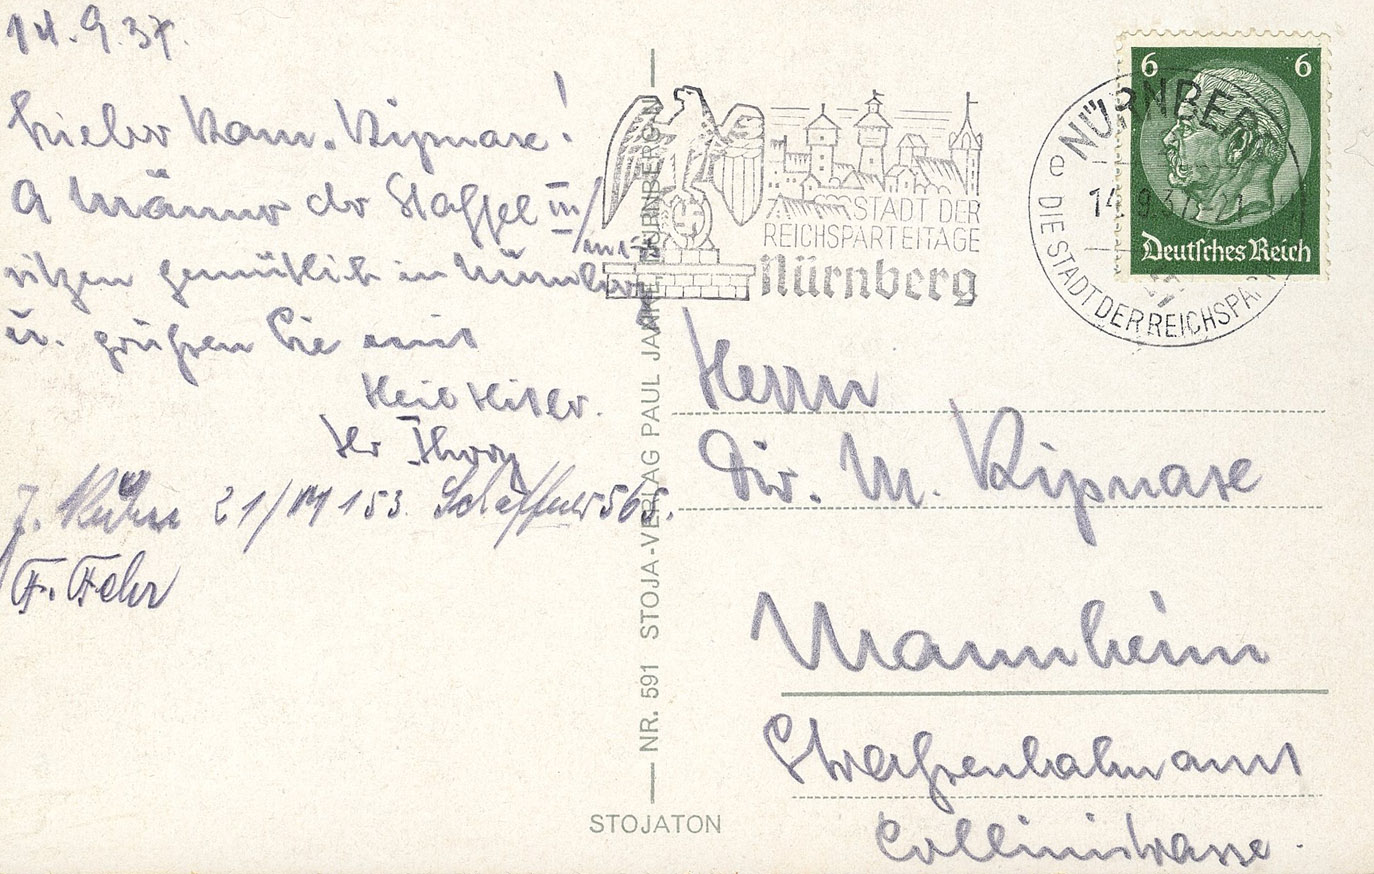 14.9.37.
Lieber Kam. Kipnase!
9 Männer der Staffel III/
sitzen gemütlich in Nürnberg
u. grüßen Sie mit
Heil Hitler.
Ihr
J. 21/M 153. 565.
F. Fehr
NR. 591 STOJA-VERLAG PAUL JANKE, NÜRNBERG-N
STOJATON
STADT DER
REICHSPARTEITAGE
Nürnberg
NÜRNBERG
e
14.9.37. 21
DIE STADT DER REICHSPAR
6 6
Deutsches Reich
Herrn
Dir. M. Kipnase
Mannheim
Straßenbahnamt
Collinistrasse.